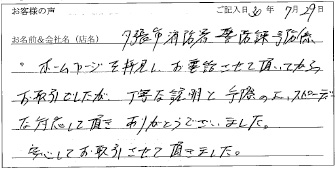 お客様の声
ご記入日 30 年 7月29日
お名前&会社名(店名) 消防署
ホームページを拝見し、お電話させて頂いてから
お取引でしたが、丁寧な説明と手際のよい、スピーディ
な対応して頂きありがとうございました。
安心してお取引させて頂きました。